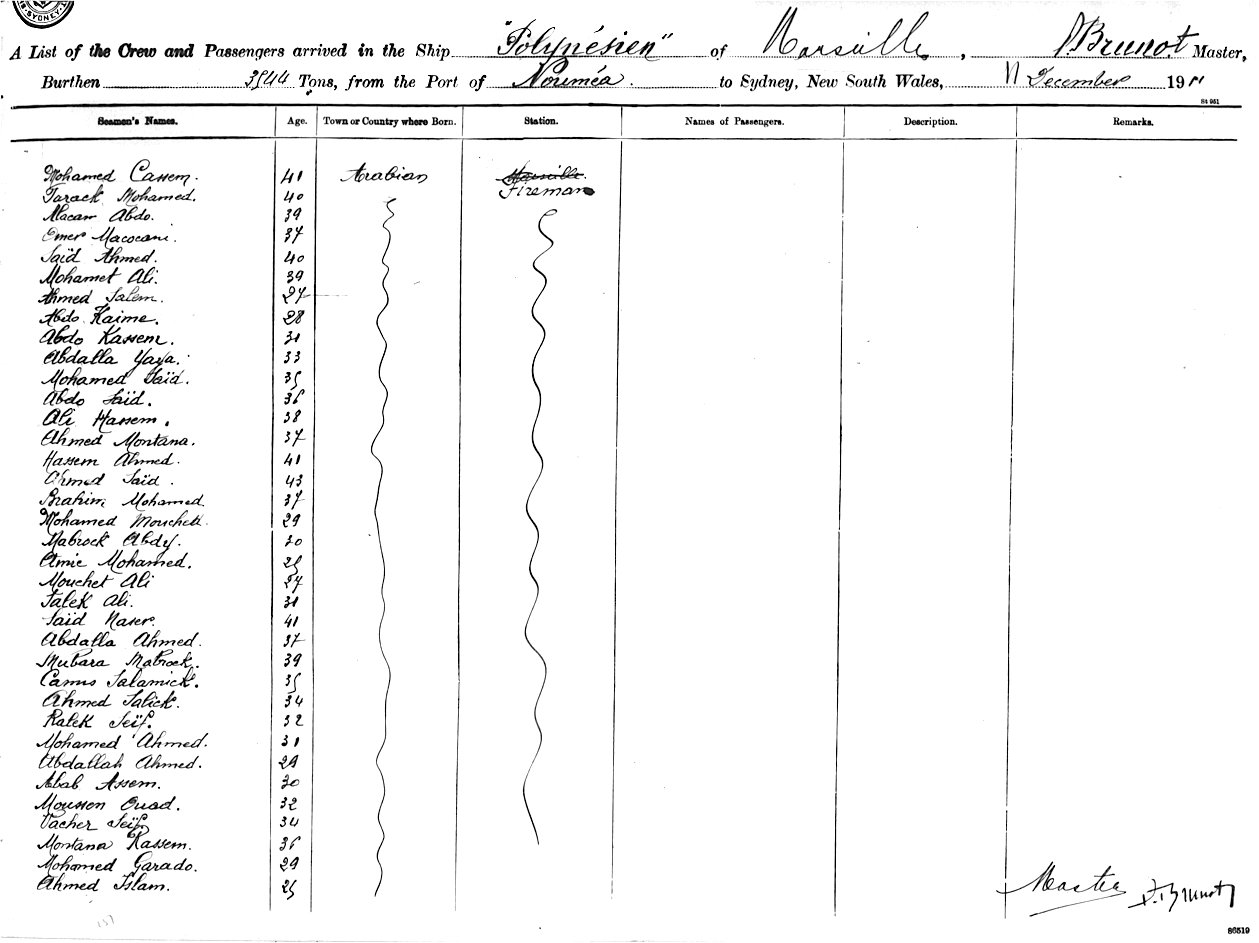 SYDNEY
A List of the Crew and Passengers arrived in the Ship "Polynésien" of Marseille, Brunot Master,
Burthen 3544 Tons, from the Port of Nouméa. to Sydney, New South Wales, 11 December 19
84 951
Seamen's Names. Age. Town or Country where Born. Station. Names of Passengers. Description. Remarks.
Mohamed Cassem. 41 Arabian Marseille.
Tarack Mohamed. 40 Fireman
Macam Abdo. 39
Omer Macocani. 37
Saïd Ahmed. 40
Mohamet Ali. 39
Ahmed Salem. 27
Abdo Kaime. 28
Abdo Kassem. 31
Abdalla Yaya. 33
Mohamed Saïd. 35
Abdo Saïd. 36
Ali Hassem. 38
Ahmed Montana. 37
Hassem Ahmed. 41
Ahmed Saïd. 43
Brahim Mohamed. 37
Mohamed Mouchett. 29
Mabrock Abdy. 30
Amie Mohamed. 25
Mouchet Ali 27
Salek Ali. 31
Saïd Naser. 41
Abdalla Ahmed. 37
Mubara Mabrock. 39
Camus Salamick. 35
Ahmed Salick. 34
Ralek Seïf. 32
Mohamed Ahmed. 31
Abdallah Ahmed. 29
Abab Assem. 30
Mousson Ouad. 32
Vacher Seïf. 34
Montana Kassem. 36
Mohamed Garado. 29
Ahmed Islam. 25
Master Brunot
137
86519